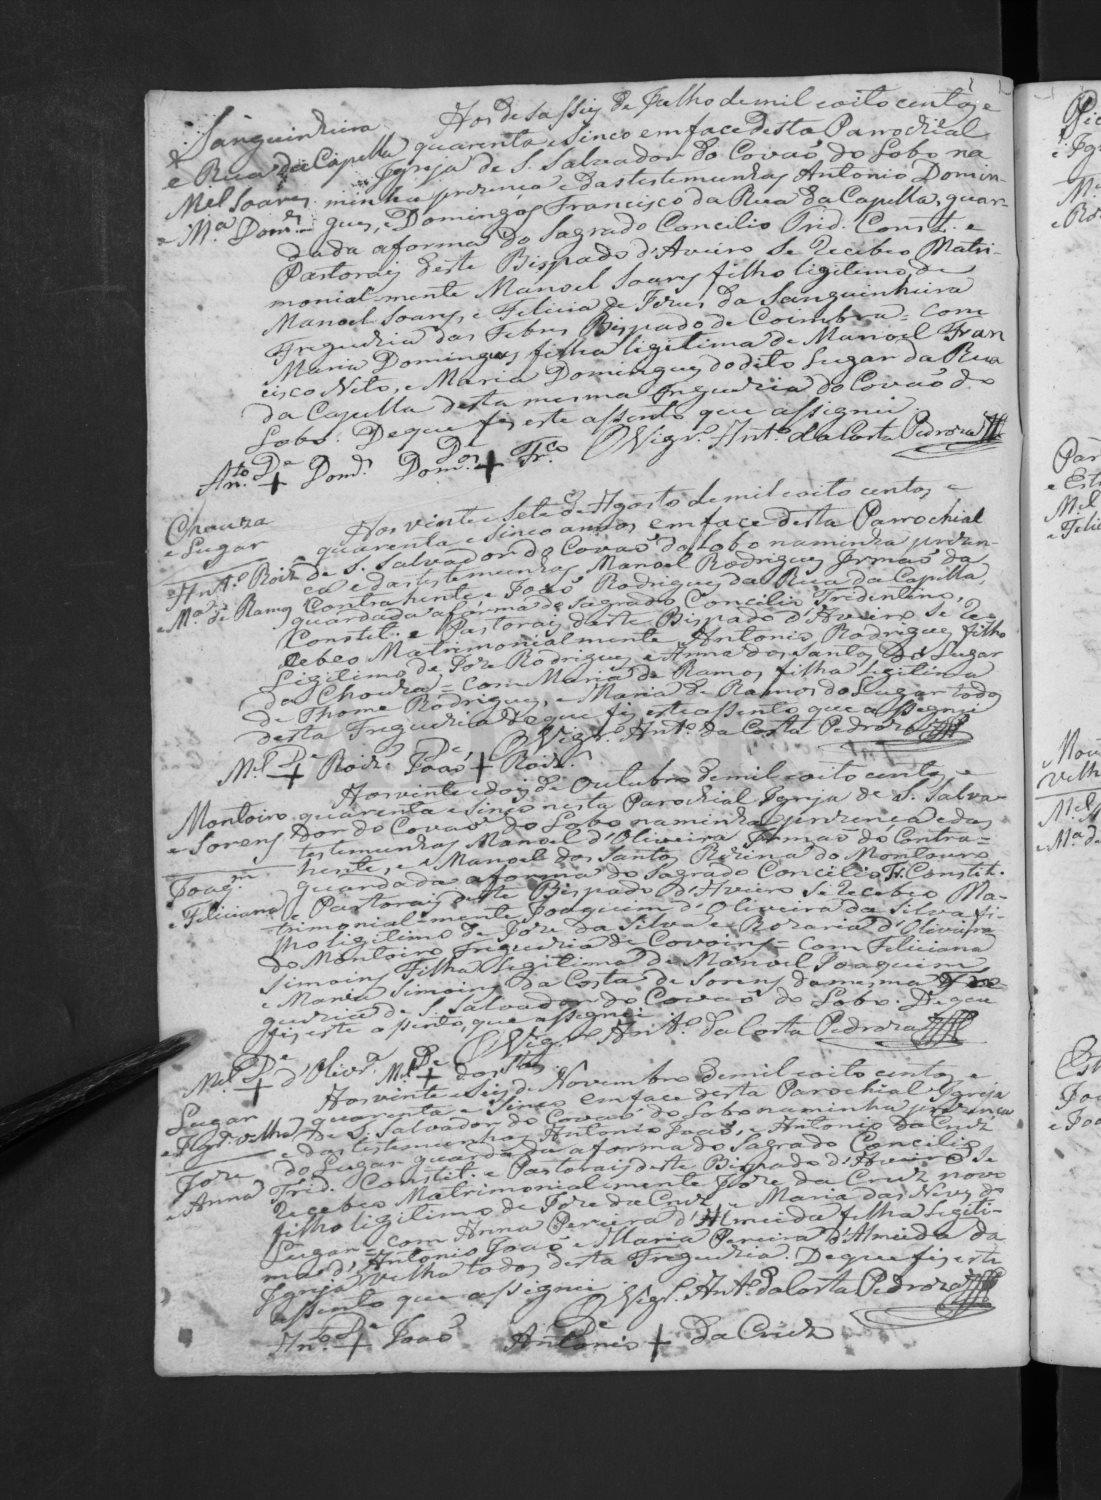 Sanguinheira
e Rua da Capella
Mel Soares
e Mª Domes
Aos desasseis de Julho de mil e oito centos e
quarenta e sinco em face desta Parrochial
Igreja de S. Salvador do Covaõ do Lobo na
minha prezença e das testemunhas Antonio Domin-
gues, e Domingos Francisco da Rua da Capella, guar-
dada a forma do Sagrado Concilio Trid. Constit. e
Pastorais deste Bispado d'Aveiro se recebeo Matri-
monialmente Manoel Soares filho ligitimo de
Manoel Soares, e Felicia de Jezus da Sanguinheira
Freguezia das Febres Bispado de Coimbra = com
Maria Domingues filha ligitima de Manoel Fran
cisco Neto, e Maria Domingues do dito Lugar da Rua
da Capella desta mesma Freguezia do Covaõ do
Lobo. De que fiz este assento que assignei
O Vigrº Antº da Costa Pedroza
Anto De + Domes Domos De + Frco
Chouza
e Lugar
Antº Roiz
e Mª de Ramos
Aos vinte e sete de Agosto de mil e oito centos e
quarenta e sinco annos em face desta Parrochial
de S. Salvador do Covaõ do Lobo na minha prezen-
ca e das testemunhas Manoel Rodrigues Irmaõ da
Contrahente e Joaõ Rodrigues da Rua da Capella,
guardada a forma do Sagrado Concilio Tridentino,
Constit. e Pastorais deste Bispado d'Aveiro se re-
cebeo Matrimonialmente Antonio Rodrigues filho
Ligitimo de Joze Rodrigues, e Anna dos Santos do Lugar
da Chouza = com Maria de Ramos filha ligitima
de Thome Rodrigues, e Maria de Ramos do Lugar todos
desta Freguezia De que fiz este assento que assignei
O Vigrº Antº da Costa Pedroza
Mel De + Roiz Joaõ De + Roiz
Montoiro
e Sorens
Joaqm
e Feliciana
Aos vinte e dois de Outubro de mil e oito centos e
quarenta e sinco nesta Parochial Igreja de S. Salva-
dor do Covaõ do Lobo na minha prezenca e das
testemunhas Manoel d'Oliveira Irmaõ do Contra=
hente, e Manoel dos Santos Rezina do Montouro
guardada a forma do Sagrado Concilio Tr. Constit.
e Pastorais deste Bispado d'Aveiro se recebeo Ma-
trimonialmente Joaquim d'Oliveira da Silva fi-
lho ligitimo de Joze da Silva e Rozaria d'Oliveira
do Montoiro Freguezia de Covoins = com Feliciana
Simoins Filha Legitima de Manoel Joaquim
e Maria Simoins da Costa de Sorens da mesma Fre
guezia de S. Salvador do Covaõ do Lobo. De que
fiz este assento, que assignei
O Vigrº Antº da Costa Pedroza
Mel De + d'Olivrª Mel De + dos Stos
Lugar
e Igrª velha
Joze
e Anna
Aos vinte e seis de Novembro de mil e oito centos e
quarenta e sinco em face desta Parochial Igreja
de S. Salvador do Covaõ do Lobo na minha prezenca
e das testemunhas Antonio Joaõ, e Antonio da Cruz
do Lugar guardada a forma do Sagrado Concilio
Trid. Constit. e Pastorais deste Bispado d'Aveiro se
recebeo Matrimonialmente Joze da Cruz novo
filho ligitimo de Joze da Cruz, e Maria das Neves do
Lugar = com Anna Pereira d'Almeida filha Legiti-
ma d'Antonio Joaõ e Maria Pereira d'Almeida da
Igreja velha todos desta Freguezia. De que fiz este
assento que assignei
O Vigrº Antº da Costa Pedroza
Anto De + Joaõ Antonio De + da Cruz